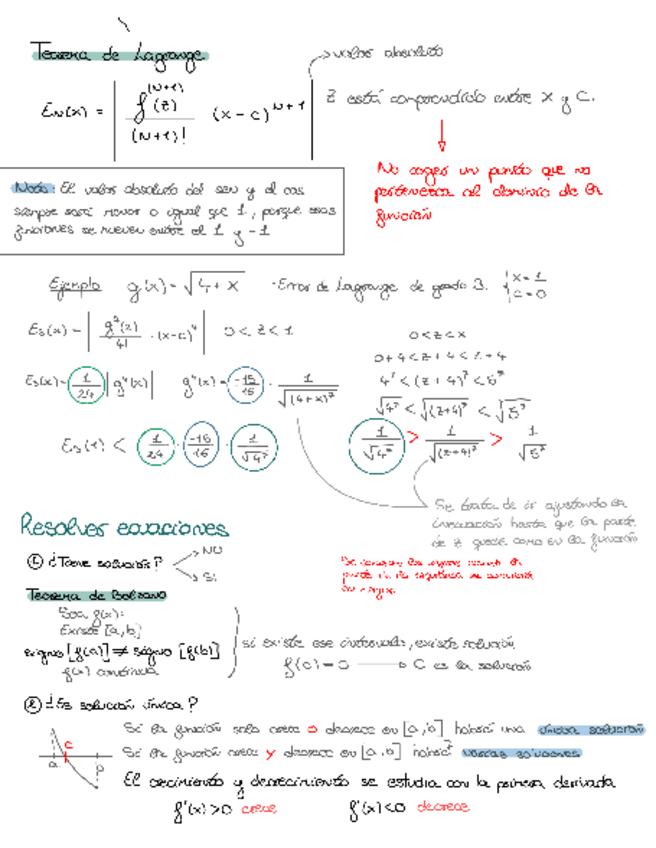 Teorema de Lagrange
valor absoluto
E_N(x) = | f^(N+1)(z) / (N+1)! (x-c)^N+1 |
z está comprendido entre x y c.
No coger un punto que no
pertenezca al dominio de la
función
Nota: El valor absoluto del sen y el cos
siempre será menor o igual que 1, porque esas
funciones se mueven entre el 1 y -1
Ejemplo g(x) = √4+x · Error de Lagrange de grado 3. { x=1 c=0
E₃(x) = | g⁴(z) / 4! · (x-c)⁴ | 0 < z < 1
E₃(x) = 1/24 |g⁴(x)| g⁴(x) = -15/16 · 1/√(4+x)⁷
E₃(1) < 1/24 · -15/16 · 1/√4⁷
0 < z < x
0+4 < z+4 < 1+4
4⁷ < (z+4)⁷ < 5⁷
√4⁷ < √(z+4)⁷ < √5⁷
1/√4⁷ > 1/√(z+4)⁷ > 1/√5⁷
Se trata de ir ajustando la
inecuación hasta que la parte
de z quede como en la función
Resolver ecuaciones
① ¿Tiene solución? NO
SI
Teorema de Bolzano
Sea f(x):
Existe [a,b]
signo [f(a)] ≠ signo [f(b)]
f(x) continua
si existe ese intervalo, existe solución
f(c) = 0 → c es la solución
② ¿Es solución única?
Si la función solo crece o decrece en [a,b] habrá una única solución
Si la función crece y decrece en [a,b] habrá varias soluciones
a c b
El crecimiento y decrecimiento se estudia con la primera derivada
f'(x) > 0 crece f'(x) < 0 decrece